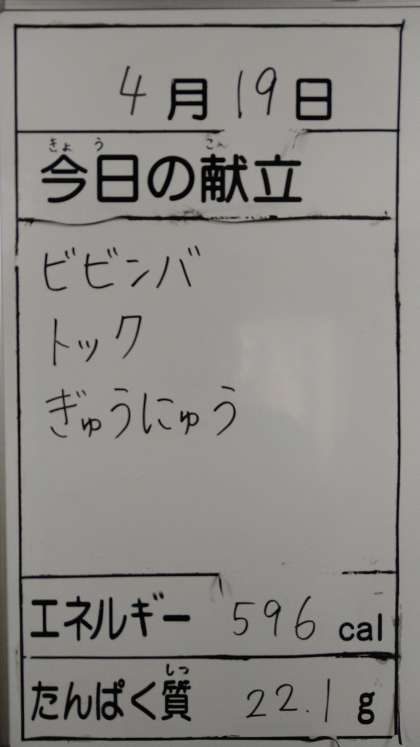 4月19日
今日の献立
ビビンバ
トック
ぎゅうにゅう
エネルギー 596 cal
たんぱく質 22.1 g